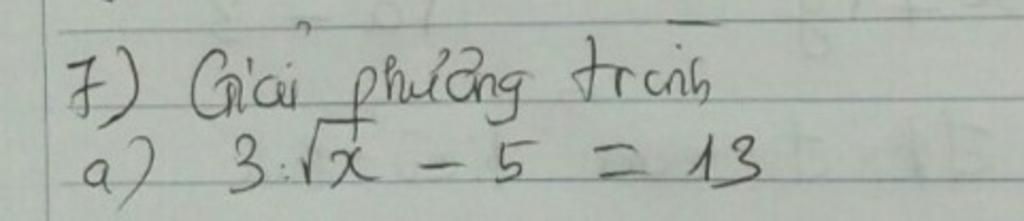 7) Giải phương trình
a) 3.√x - 5 = 13